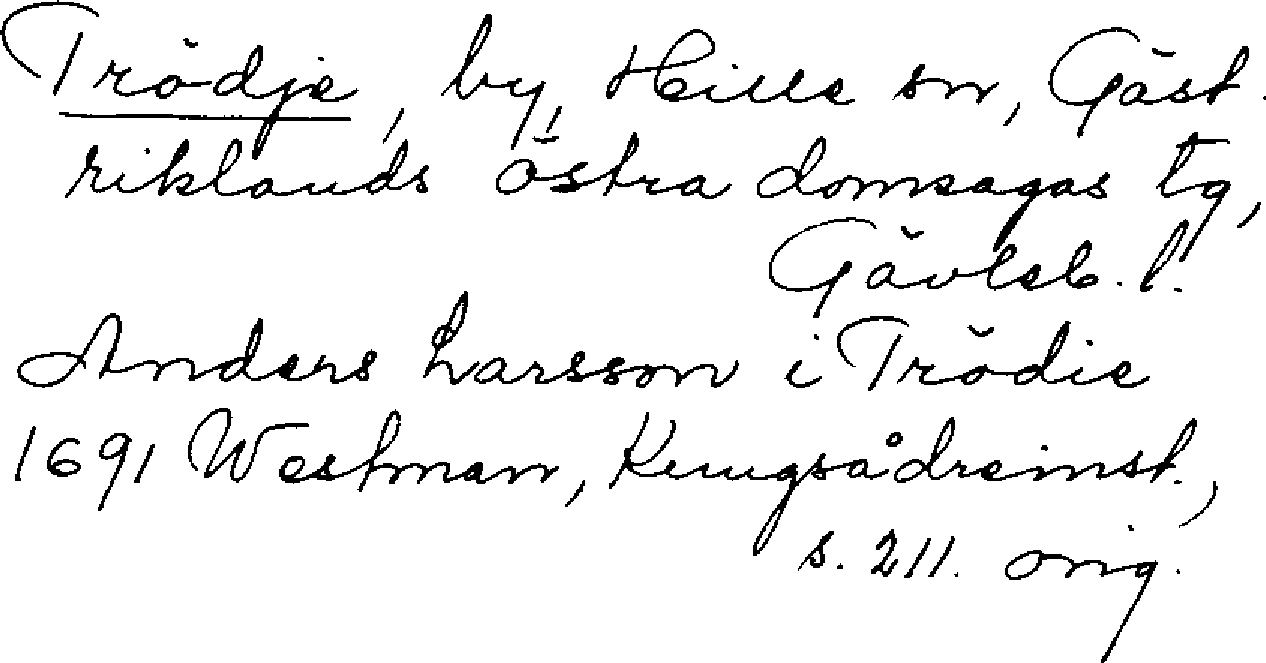 Trödje, by, Hille sn, Gäst-
riklands östra domsagas tg,
Gävleb. l.
Anders Larsson i Trödie
1691 Westman, Kungsådreinst.,
s. 211. orig.